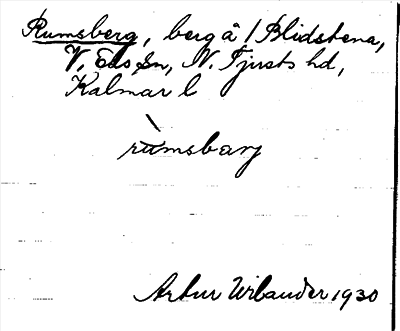 Rumsberg, berg å /Blidstena,
V. Eds Sn, N. Tjusts hd,
Kalmar l
rùmsbarj
Artur Wilander 1930